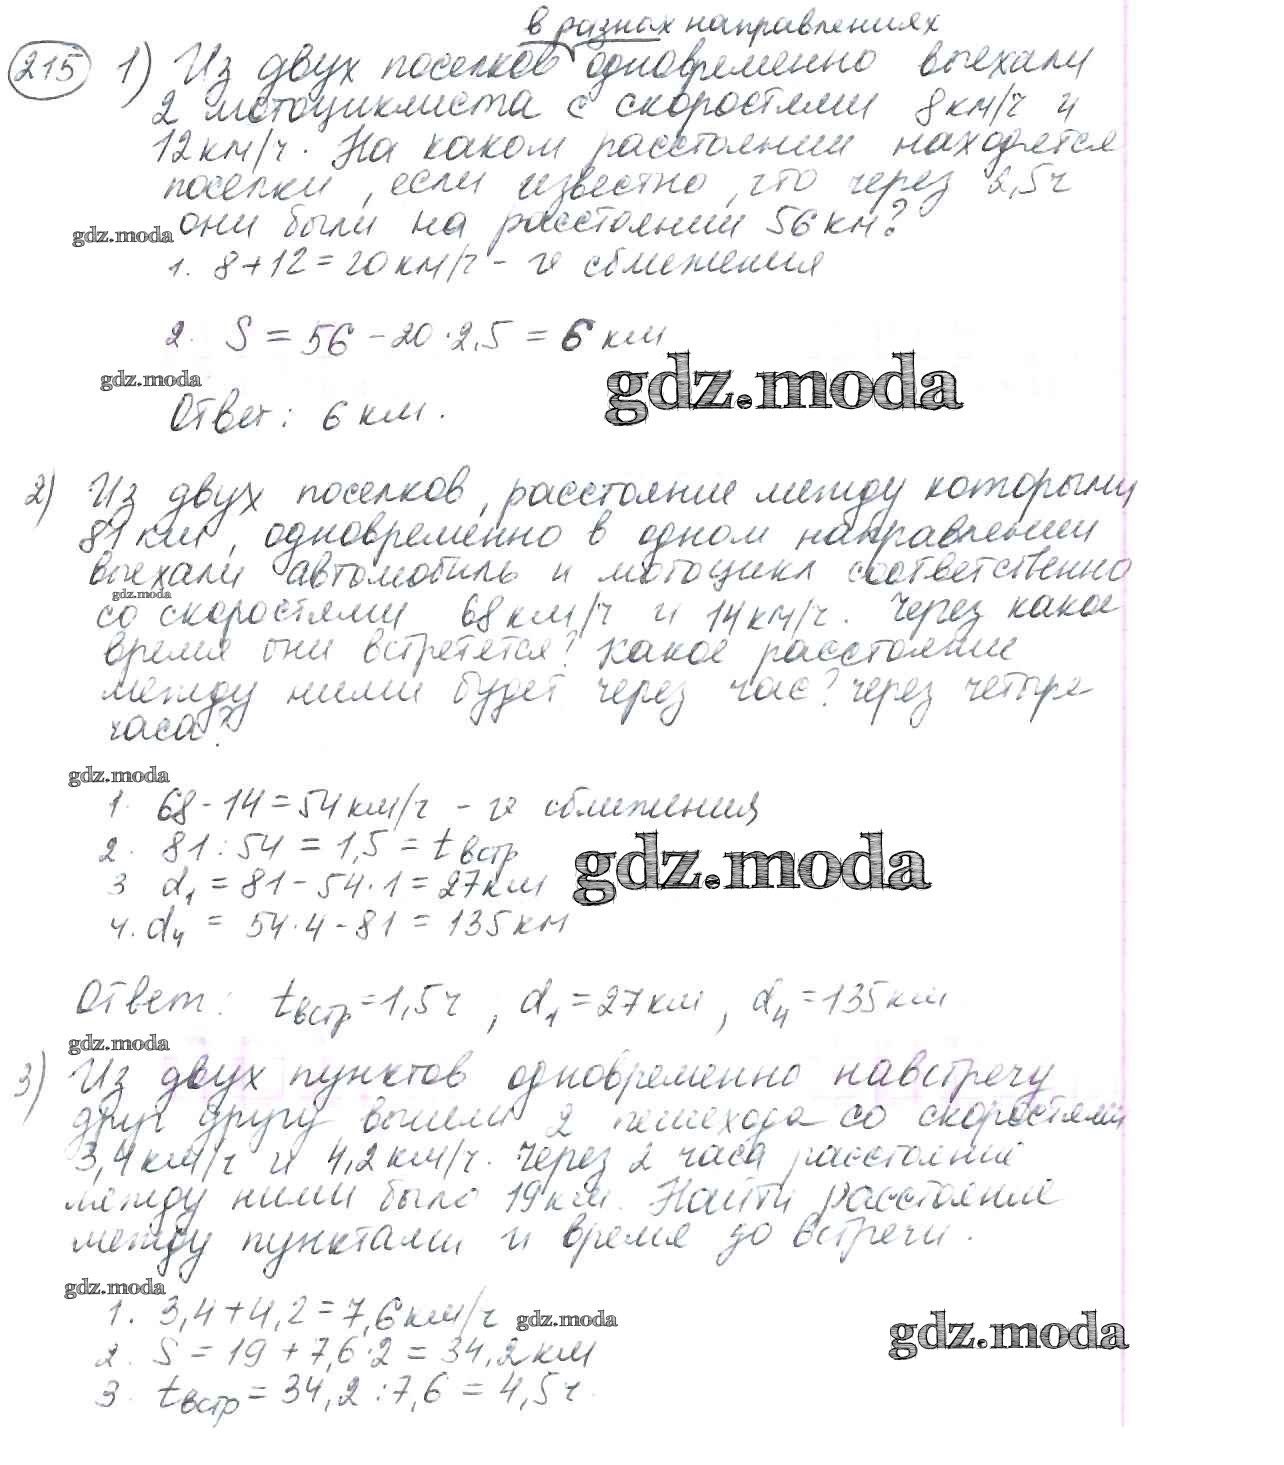 в разных направлениях
215 1) Из двух поселков одновременно выехали
2 мотоциклиста с скоростями 8 км/ч и
12 км/ч. На каком расстоянии находятся
поселки, если известно, что через 2,5 ч
они были на расстоянии 56 км?
gdz.moda
1. 8 + 12 = 20 км/ч - сближения
2. S = 56 - 20 · 2,5 = 6 км
gdz.moda
gdz.moda
Ответ: 6 км.
2) Из двух поселков, расстояние между которыми
81 км, одновременно в одном направлении
выехали автомобиль и мотоцикл соответственно
gdz.moda
со скоростями 68 км/ч и 14 км/ч. Через какое
время они встретятся? Какое расстояние
между ними будет через час? через четыре
часа?
gdz.moda
1. 68 - 14 = 54 км/ч - сближения
2. 81 : 54 = 1,5 = tвстр
gdz.moda
3 d1 = 81 - 54 · 1 = 27 км
4. d4 = 54 · 4 - 81 = 135 км
Ответ: tвстр = 1,5 ч, d1 = 27 км, d4 = 135 км
gdz.moda
3) Из двух пунктов одновременно навстречу
друг другу вышли 2 пешехода со скоростями
3,4 км/ч и 4,2 км/ч. Через 2 часа расстояние
между ними было 19 км. Найти расстояние
между пунктами и время до встречи.
gdz.moda
1. 3,4 + 4,2 = 7,6 км/ч
gdz.moda
gdz.moda
2. S = 19 + 7,6 · 2 = 34,2 км
3. tвстр = 34,2 : 7,6 = 4,5 ч.